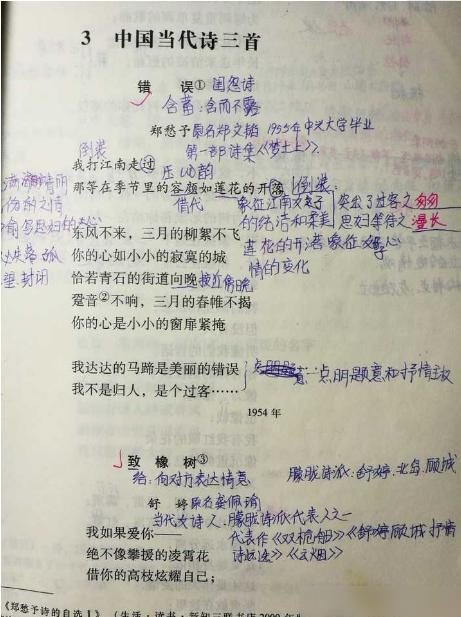 3 中国当代诗三首
错 误① 闺怨诗
含蓄:含而不露
郑愁予 原名郑文韬 1955年中兴大学毕业
倒装 第一部诗集《梦土上》
我打江南走过 压 uo 韵
那等在季节里的容颜如莲花的开落 倒装:
借代 象征江南女子 突出了过客之匆匆
的纯洁和柔美 思妇等待之漫长
东风不来,三月的柳絮不飞
莲花的开落象征女子心
你的心如小小的寂寞的城
情的变化
恰若青石的街道向晚 接近傍晚
望、封闭
跫音②不响,三月的春帷不揭
你的心是小小的窗扉紧掩
我达达的马蹄是美丽的错误
点明题意和抒情主旨
我不是归人,是个过客……
1954 年
致 橡 树③
给:向对方表达情意 朦胧诗派:舒婷、北岛、顾城
舒 婷 原名龚佩瑜
当代女诗人、朦胧诗派代表人之一
我如果爱你——
代表作《双桅船》《舒婷顾城抒情
绝不像攀援的凌霄花
诗选》
借你的高枝炫耀自己;
《郑愁予诗的自选Ⅰ》(生活·读书·新知三联书店2000年